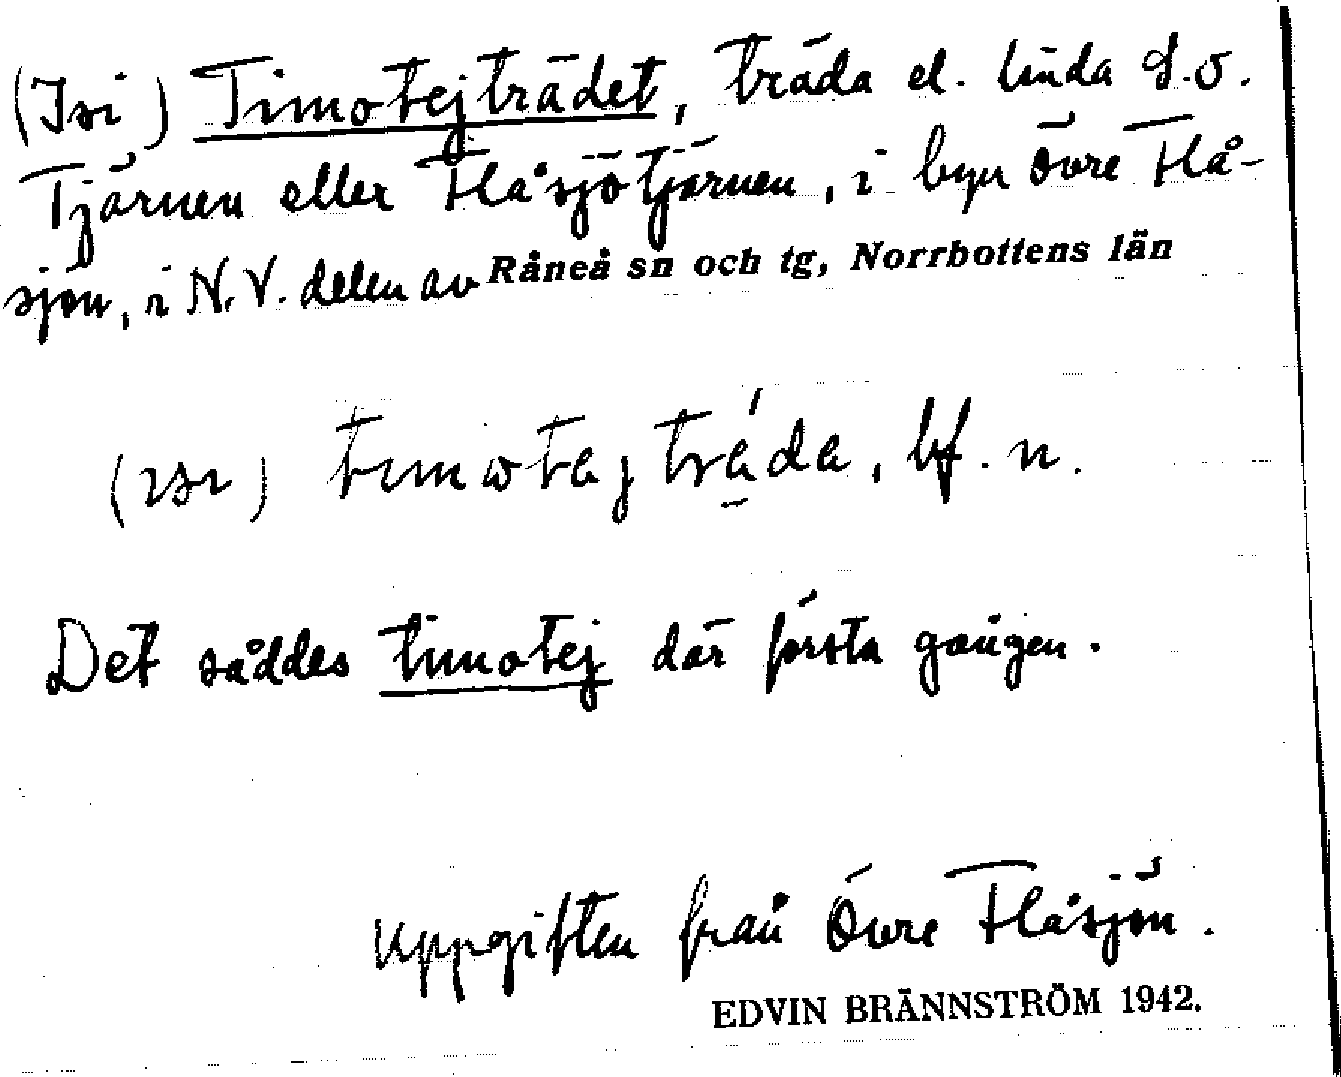 (Isi) Timotejträdet, träda el. linda S.O.
Tjärnen eller Flåsjötjärnen, i byn Övre Flå-
sjön, i N.V. delen av Råneå sn och tg, Norrbottens län
(ısı) tımotaj träda, bf. n.
Det såddes timotej där första gången.
Uppgiften från Övre Flåsjön.
EDVIN BRÄNNSTRÖM 1942.